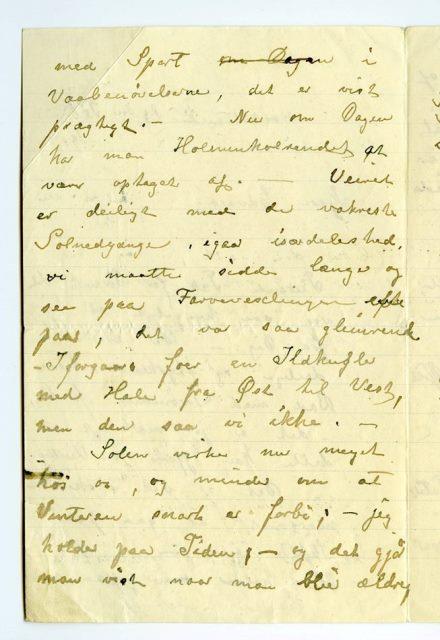 med Sport om Dagen i
Vaabenøvelserne, det er vist
prægtigt. — Nu om Dagen
har man Holmenkolrendet at
være optaget af. — Veiret
er deiligt med de vakreste
Solnedgange, igaar isærdeleshed.
vi maatte sidde længe og
see paa Farvevexlingen
paa, det var saa glimrende
- Iforgaars foer en Ildkugle
med Hale fra Øst til Vest,
men den saa vi ikke. —
Solen virker nu meget
hos os, og minder om at
Vinteren snart er forbi; — jeg
holder paa Tiden; — og det gjør
man vist naar man blir ældre,